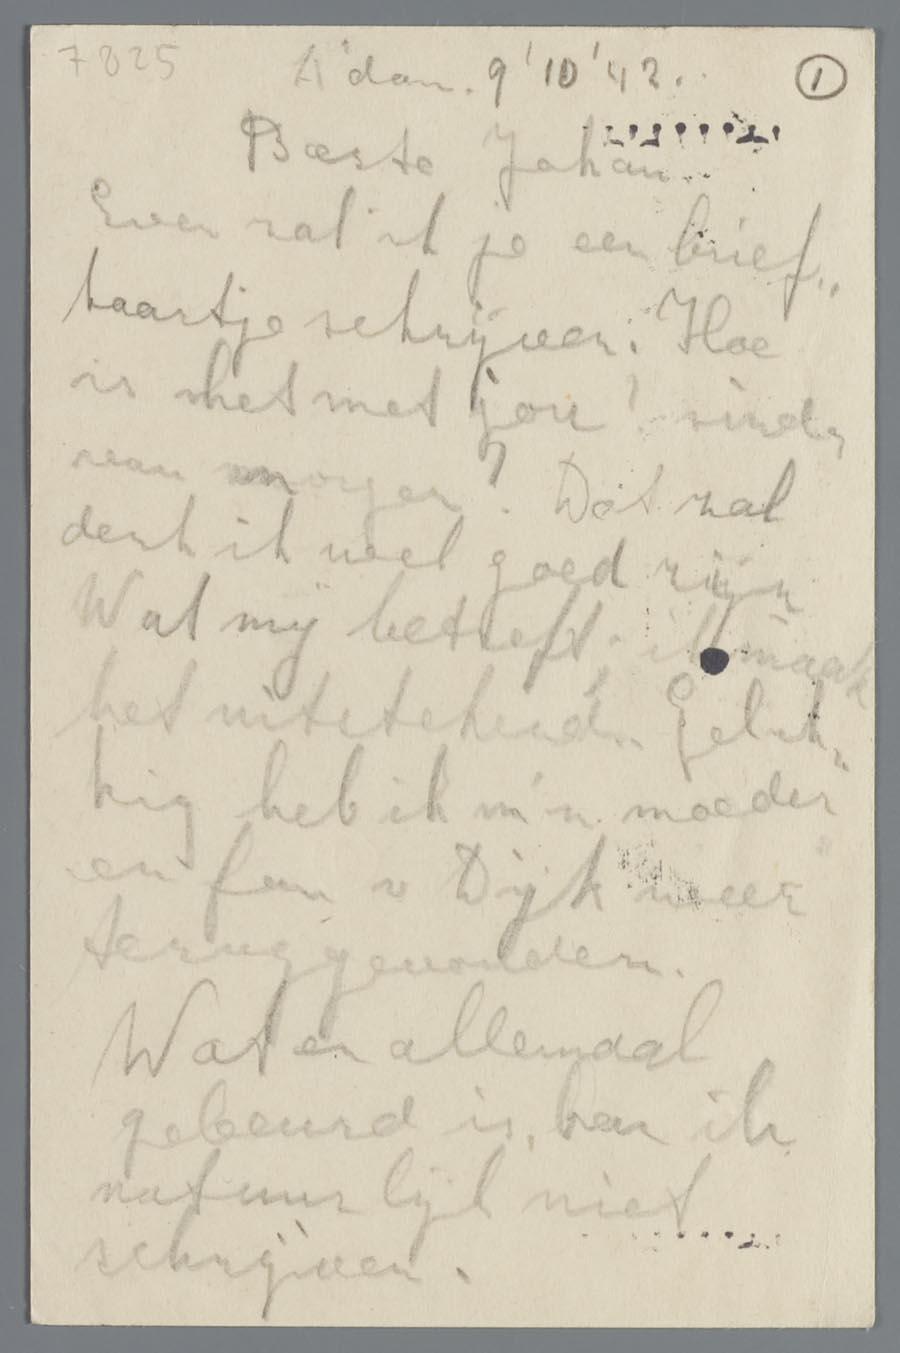 7825 A'dam. 9'10'42. 1
Beste Johan.
Even zal ik je een brief„
kaartje schrijven. Hoe
is het met jou! sinds
van morgen? Dat zal
denk ik wel goed zijn
Wat mij betreft; ik maak
het uitstekend. Geluk„
kig heb ik m'n moeder
en fam v Dijk weer
teruggevonden.
Wat er allemaal
gebeurd is, kan ik
natuurlijk niet
schrijven.